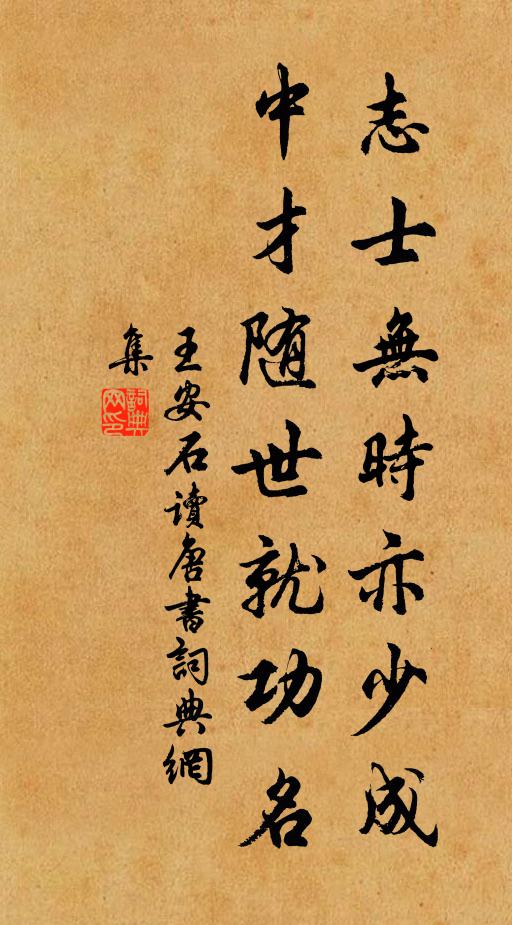 志士無時亦少成
中才随世就功名
王安石讀唐書詞典網
集
詞典
网印